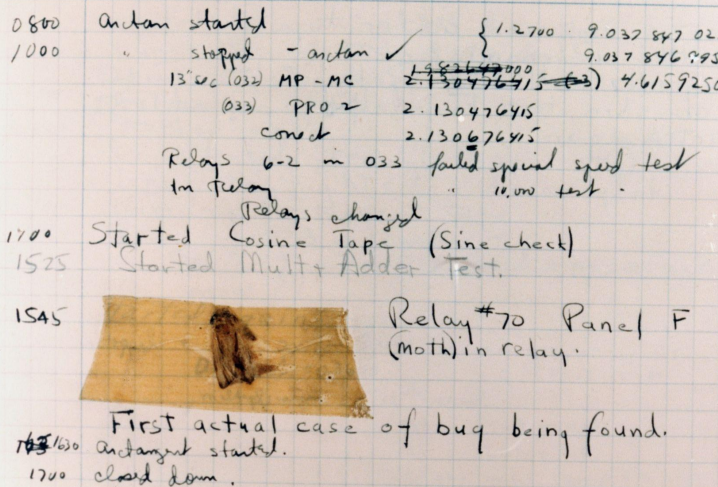 0800 Antan started
1000 " stopped - antan ✓ { 1.2700 9.037 847 02
9.037 846 795
13"sec (032) MP - MC 2.130476415 (-3) 4.615925
(033) PRO 2 2.130476415
conect 2.130676415
Relays 6-2 in 033 failed special speed test
In Relay " 10,000 test.
Relays changed
Started Cosine Tape (Sine check)
1525 Started Mult + Adder Test.
1545 Relay #70 Panel F
(Moth) in relay.
First actual case of bug being found.
1630 Antangent started.
1700 closed down.